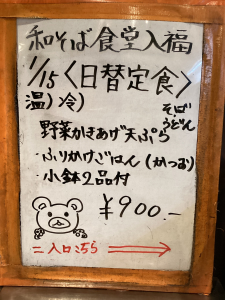 和そば食堂入福
1/15〈日替定食〉
温)冷) そば
うどん
野菜かきあげ天ぷら
・ふりかけごはん(かつお)
・小鉢2品付
¥900.-
=入口こちら→